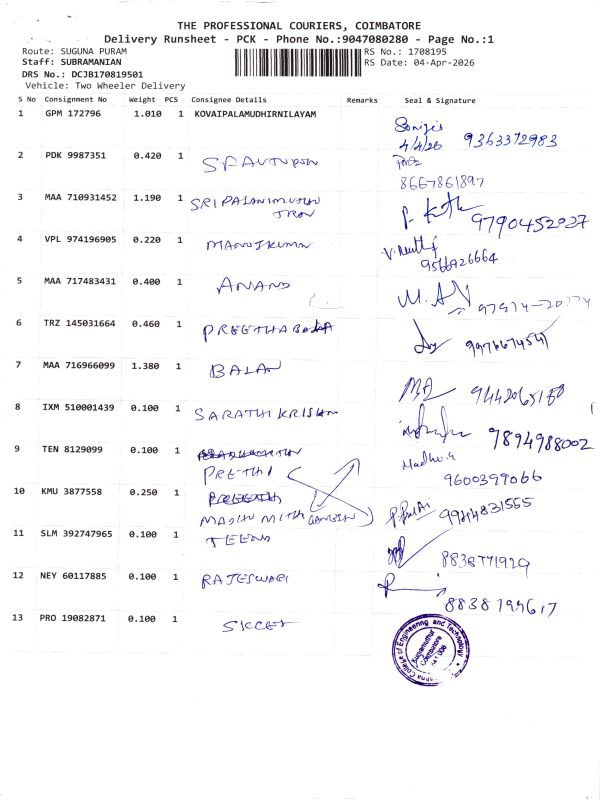 THE PROFESSIONAL COURIERS, COIMBATORE
Delivery Runsheet - PCK - Phone No.:9047080280 - Page No.:1
Route: SUGUNA PURAM
RS No.: 1708195
Staff: SUBRAMANIAN
RS Date: 04-Apr-2026
DRS No.: DCJB170819501
Vehicle: Two Wheeler Delivery
S No Consignment No Weight PCS Consignee Details Remarks Seal & Signature
1 GPM 172796 1.010 1 KOVAIPALAMUDHIRNILAYAM
4/4/26 9363372983
2 PDK 9987351 0.420 1
8667861897
3 MAA 710931452 1.190 1 SRIPALANIMURUGAN
9790452027
4 VPL 974196905 0.220 1 MANOJKUMAR
9566926664
5 MAA 717483431 0.400 1 ANAND
6 TRZ 145031664 0.460 1 PREETHABALA
7 MAA 716966099 1.380 1 BALAN
8 IXM 510001439 0.100 1 SARATHI KRISHN
9894988002
9 TEN 8129099 0.100 1
PREETHI
9600399066
10 KMU 3877558 0.250 1
MADHU MITHA
9944831555
11 SLM 392747965 0.100 1
8838771929
12 NEY 60117885 0.100 1 RAJESWARI
8838194617
13 PRO 19082871 0.100 1 SKCET
College of Engineering and Technology
Kuniamuthur
Coimbatore